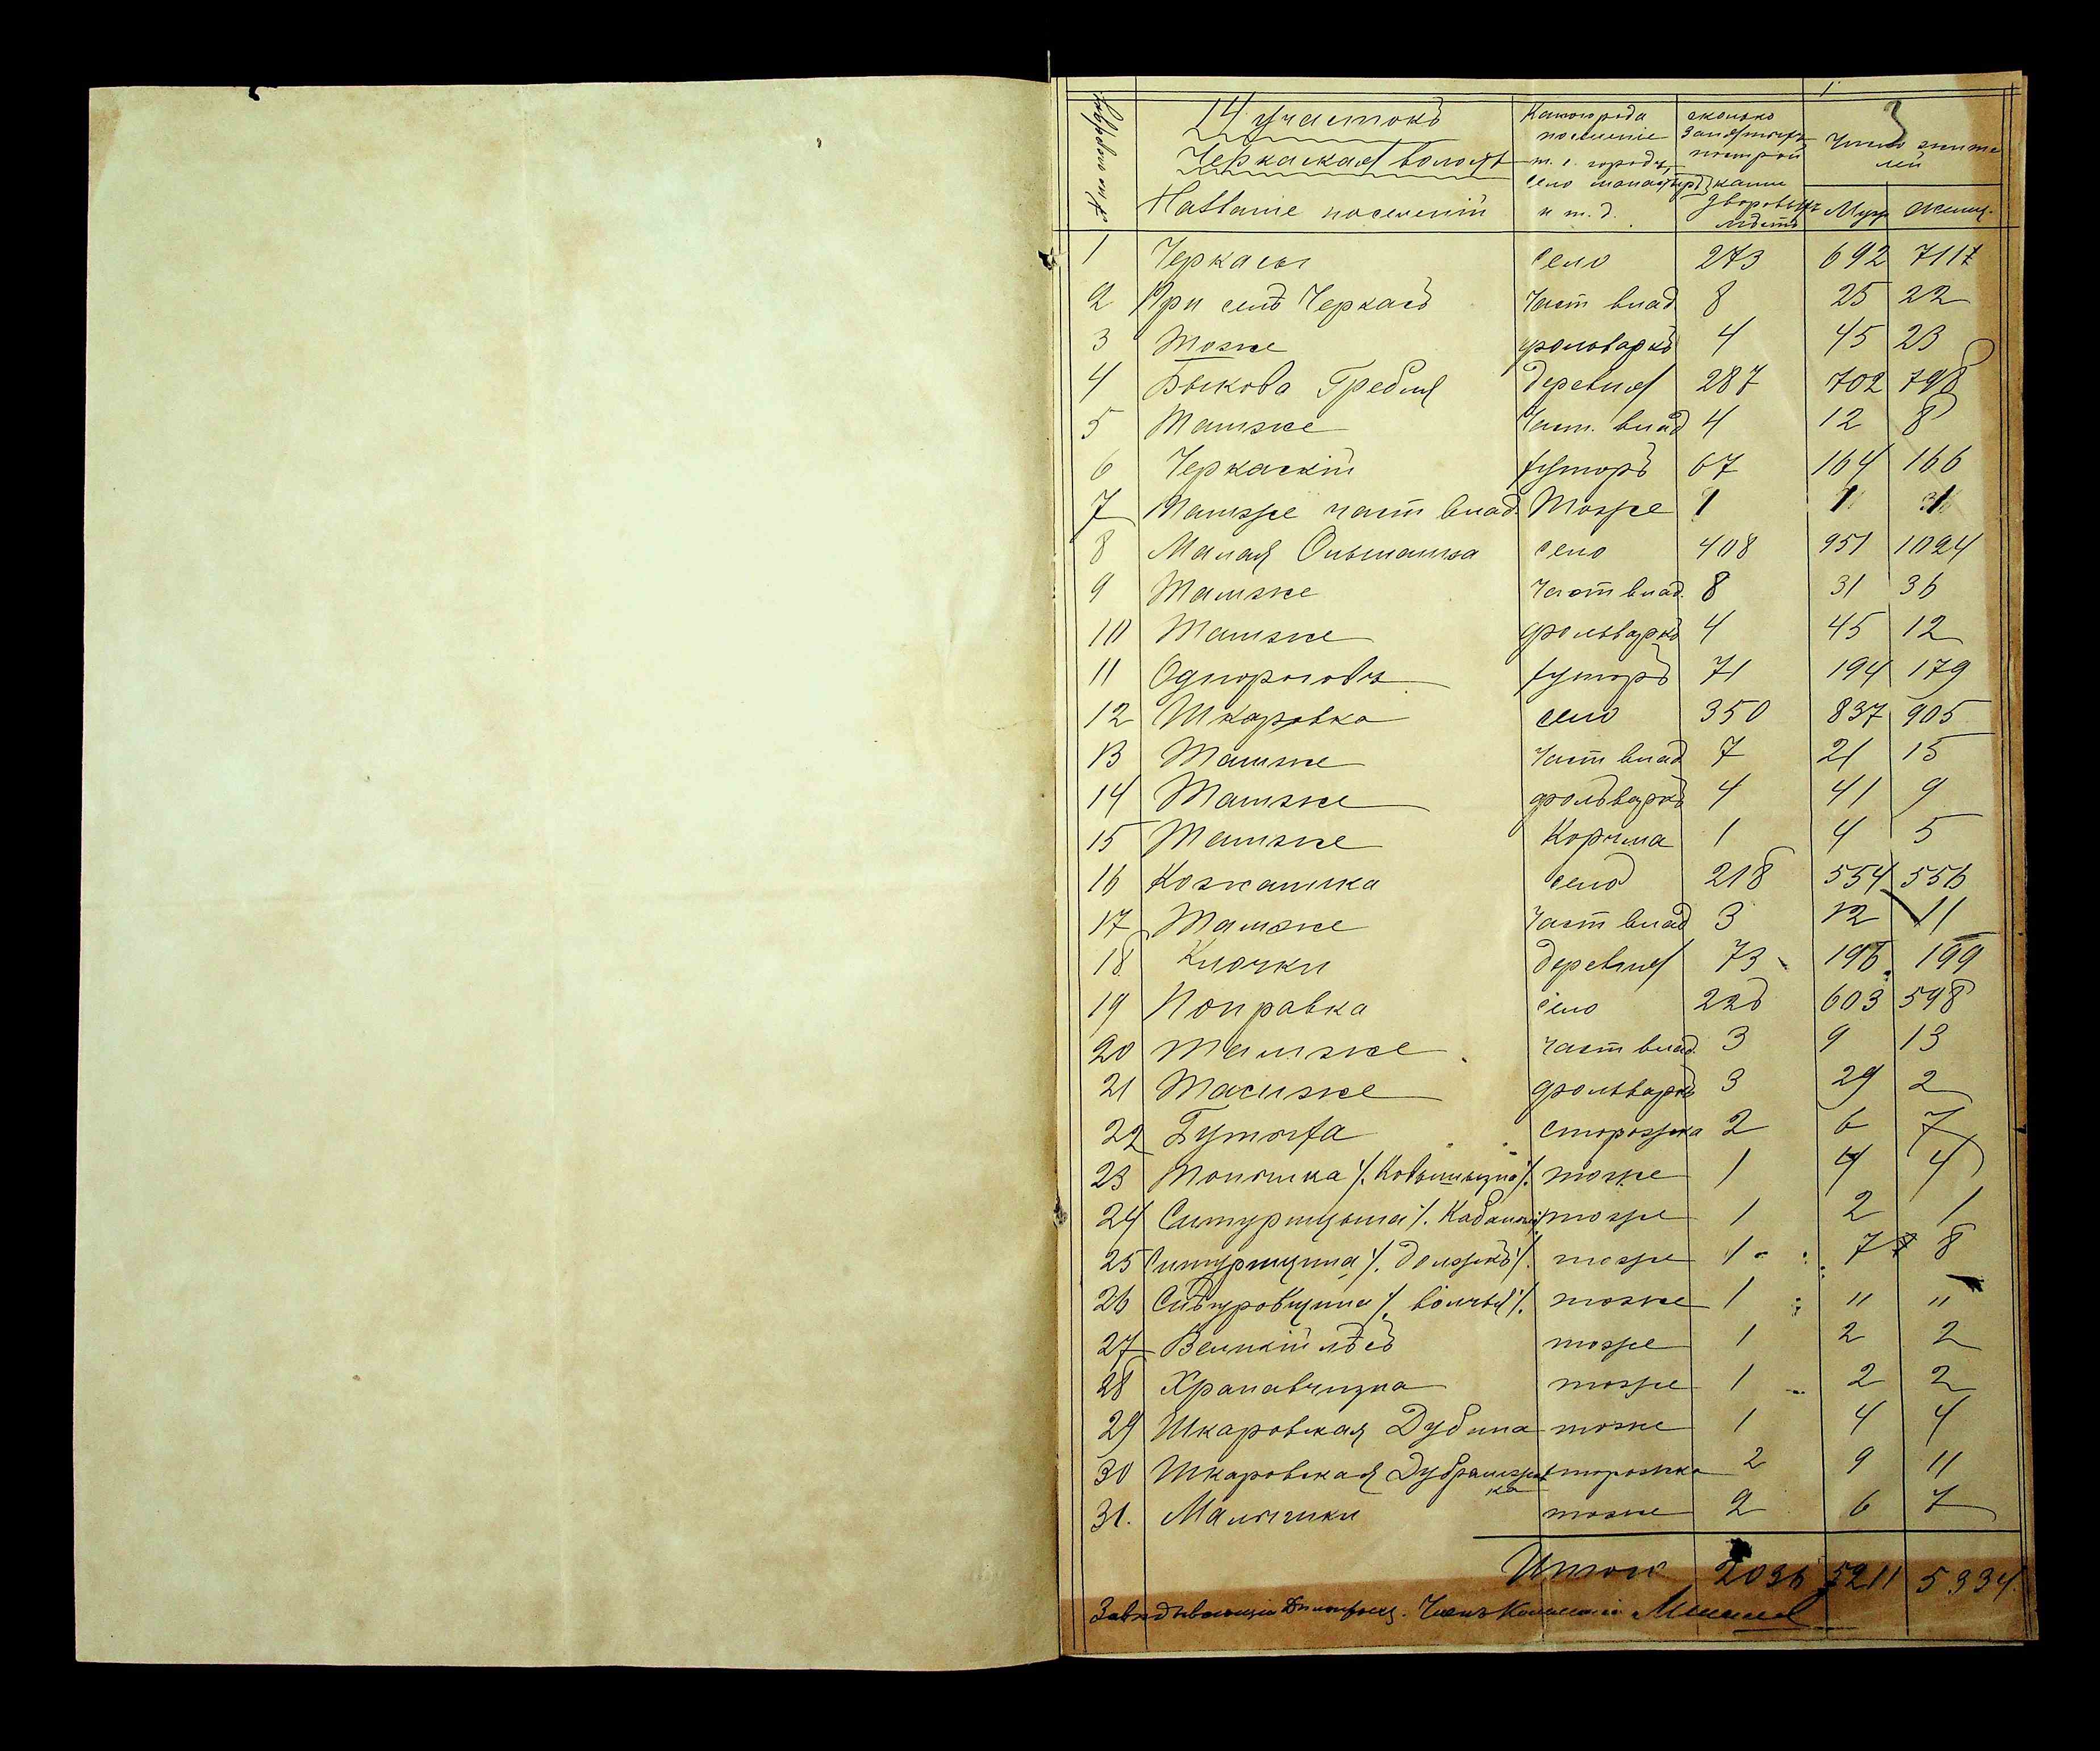 3
14 участокъ
Черкаская волость
Названіе поселеній
Какого рода поселеніе т. е. городъ, село монастырь и т. д.
сколько занятыхъ постройками дворовыхъ мѣстъ
Число жителей
Муж Женщ.
1 Черкасы село 273 692 711
2 При селѣ Черкасъ Част влад 8 25 22
3 Тоже фольваркъ 4 45 23
4 Быкова Гребля деревня 287 702 798
5 Тамже Част. влад 4 12 8
6 Черкаскій хуторъ 67 164 166
7 Тамже част влад. Тоже 1 1 1
8 Малая Ольшанка село 408 951 1024
9 Тамже Част влад. 8 31 36
10 Тамже фольваркъ 4 45 12
11 Однороговъ хуторъ 71 194 179
12 Шкаровка село 350 837 905
13 Тамже Част влад 7 21 15
14 Тамже фольваркъ 4 41 9
15 Тамже Корчма 1 4 5
16 Кожанка село 218 554 556
17 Тамже Част влад 3 12 11
18 Клочки деревня 73 196 199
19 Поправка село 226 603 598
20 тамже част влад. 3 9 13
21 Тамже фольваркъ 3 29 2
22 сторожка 2 6 7
23 тоже 1 4 4
24 тоже 1 2 1
25 тоже 1 7 8
26 тоже 1 " "
27 Великій лѣсъ тоже 1 2 2
28 тоже 1 2 2
29 Шкаровская Дубина тоже 1 4 4
30 Шкаровская сторожка 2 9 11
31. тоже 2 6 7
Итого 2036 5211 5334.
Членъ Коммисіи